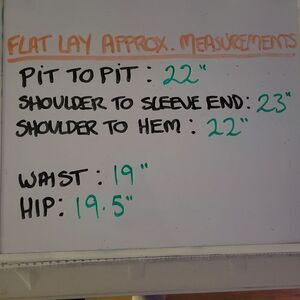 FLAT LAY APPROX. MEASUREMENTS
PIT TO PIT : 22"
SHOULDER TO SLEEVE END: 23"
SHOULDER TO HEM : 22"
WAIST : 19"
HIP: 19.5"